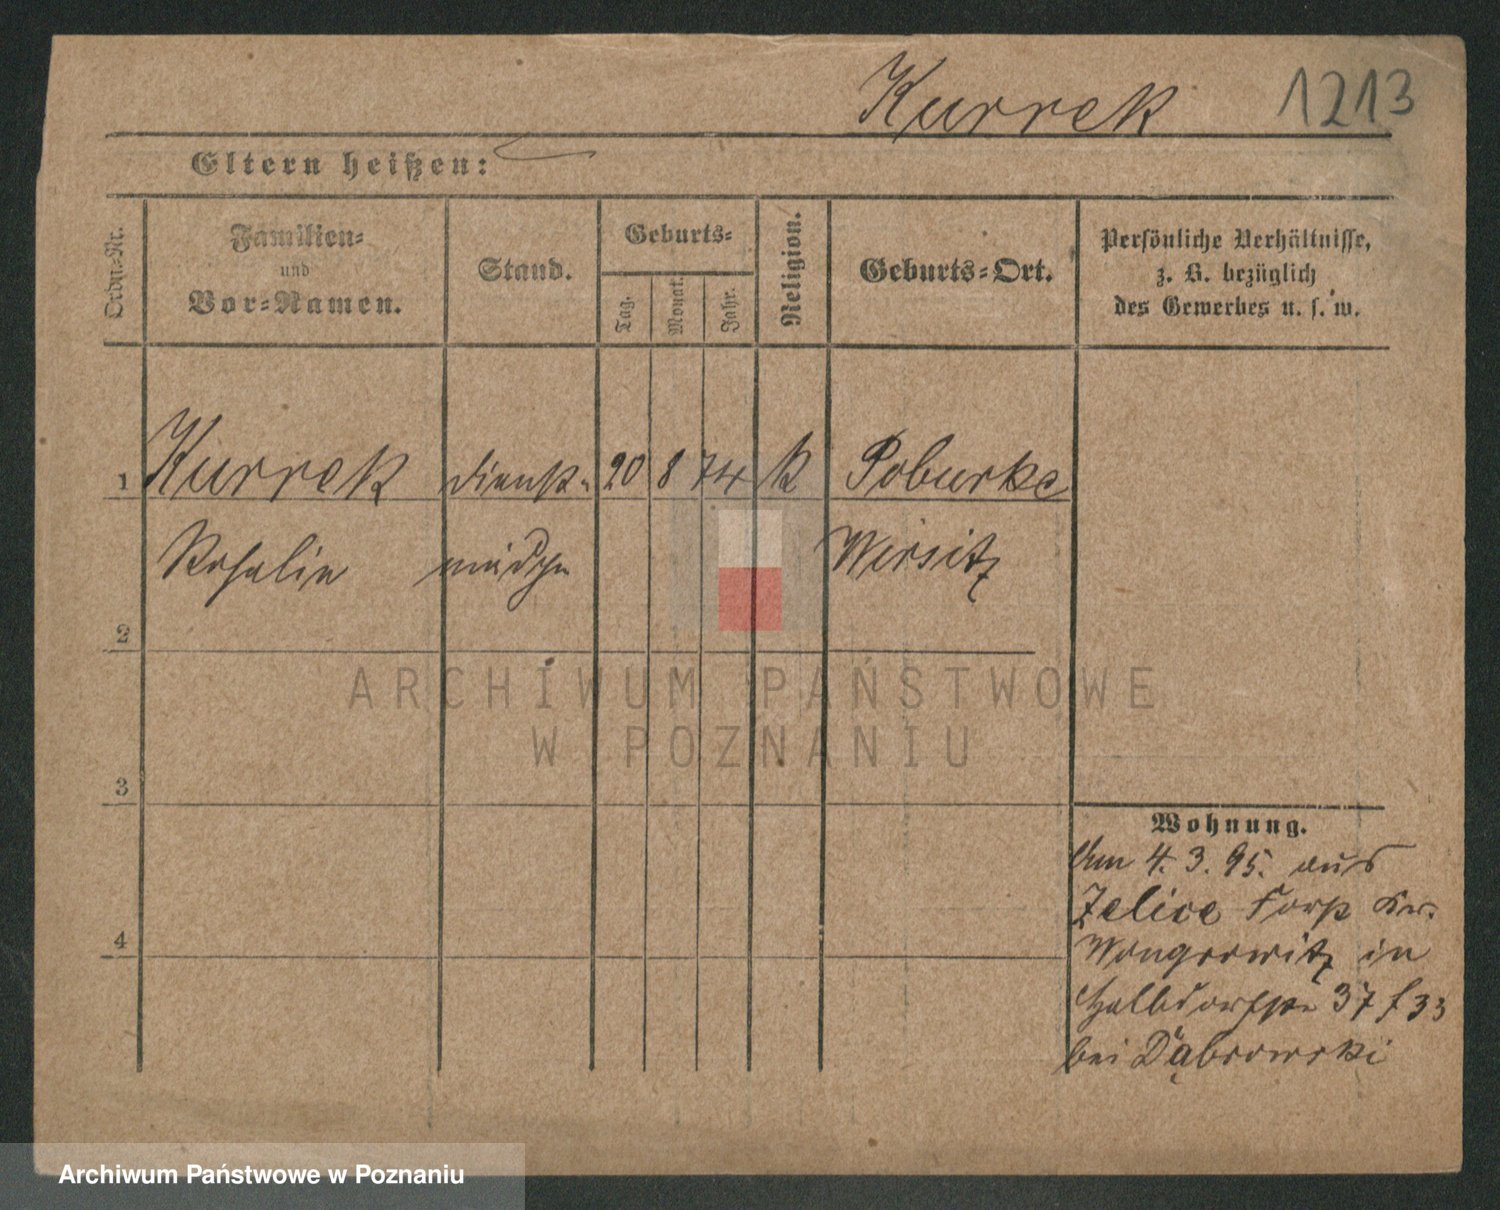 Kurrek 1213
Eltern heißen:
Ordn.-Nr.
Familien-
und
Vor-Namen.
Stand.
Geburts-
Tag.
Monat.
Jahr.
Religion.
Geburts-Ort.
Persönliche Verhältnisse,
z. B. bezüglich
des Gewerbes u. s. w.
1 Kurrek dienst- 20 8 74 k Poburke
Rosalie mädchen Wirsitz
2
3
4
Wohnung.
Am 4. 3. 95. aus
Zelice Forst Kr.
Wongrowitz in
Halbdorfstr 37
bei Dąbrowski
ARCHIWUM PAŃSTWOWE
W POZNANIU
Archiwum Państwowe w Poznaniu